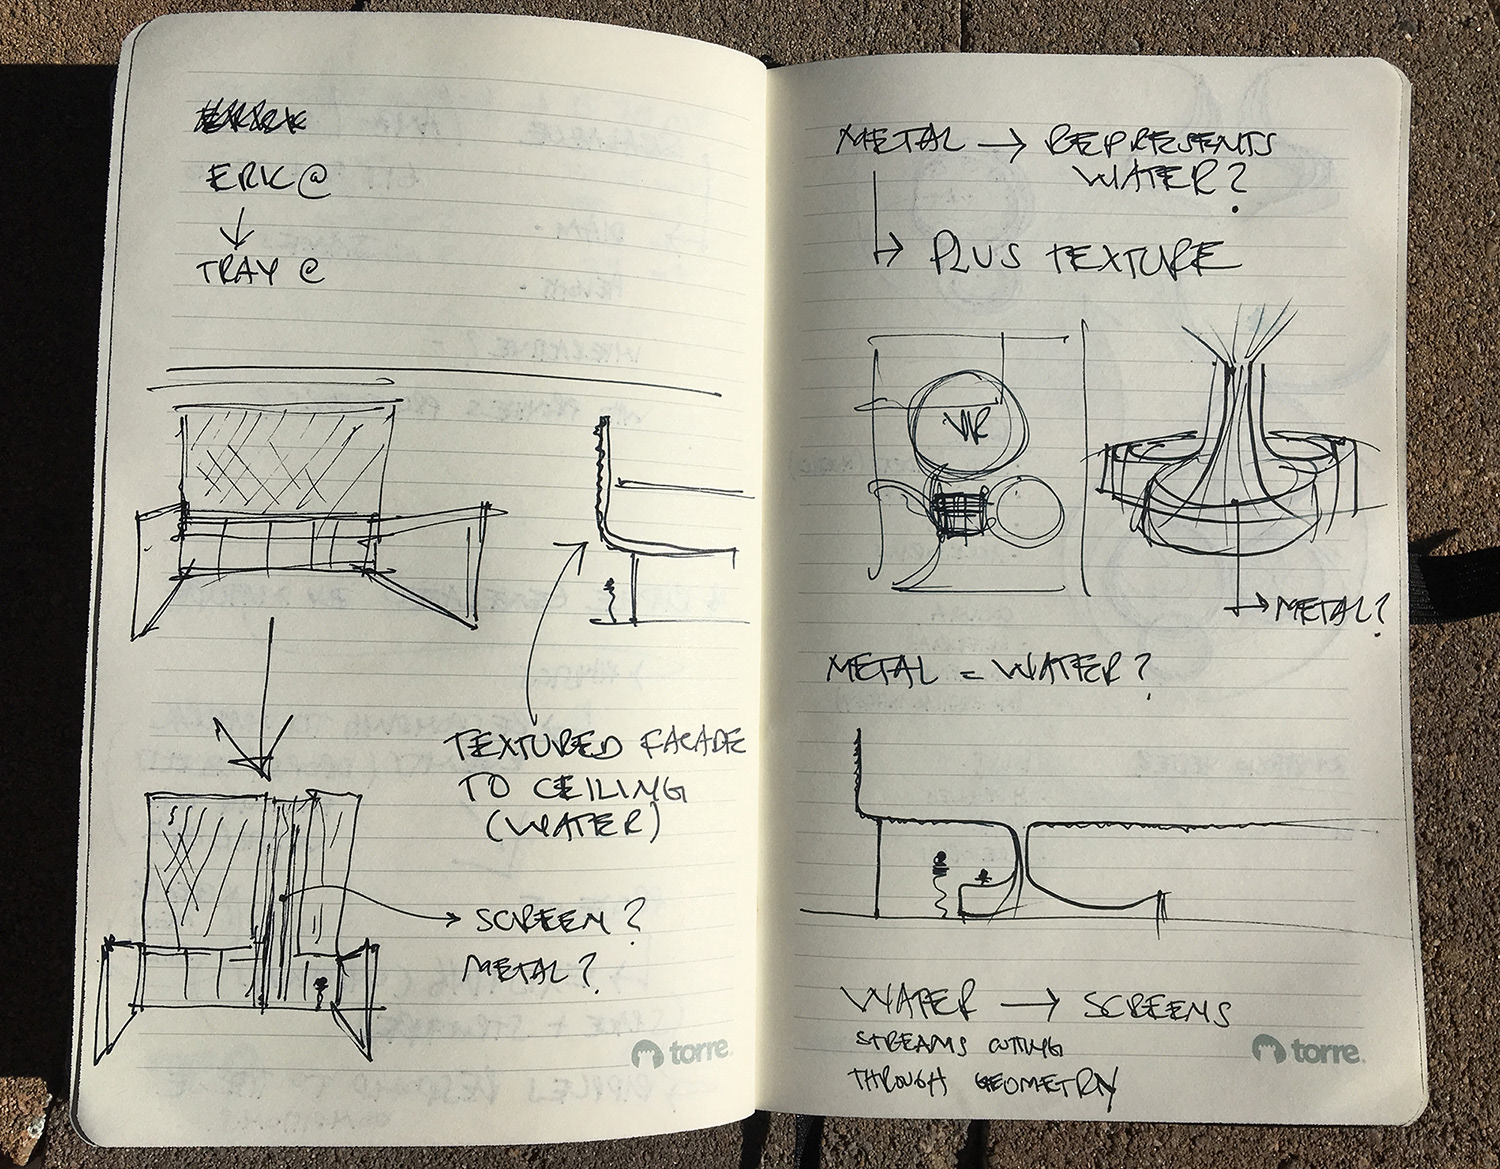 ERIC @
TRAY @
TEXTURED FACADE
TO CEILING
(WATER)
SCREEN?
METAL?
torre.
METAL → REPRESENTS
WATER?
PLUS TEXTURE
VR
METAL?
METAL = WATER?
WATER → SCREENS
STREAMS CUTTING
THROUGH GEOMETRY
torre.